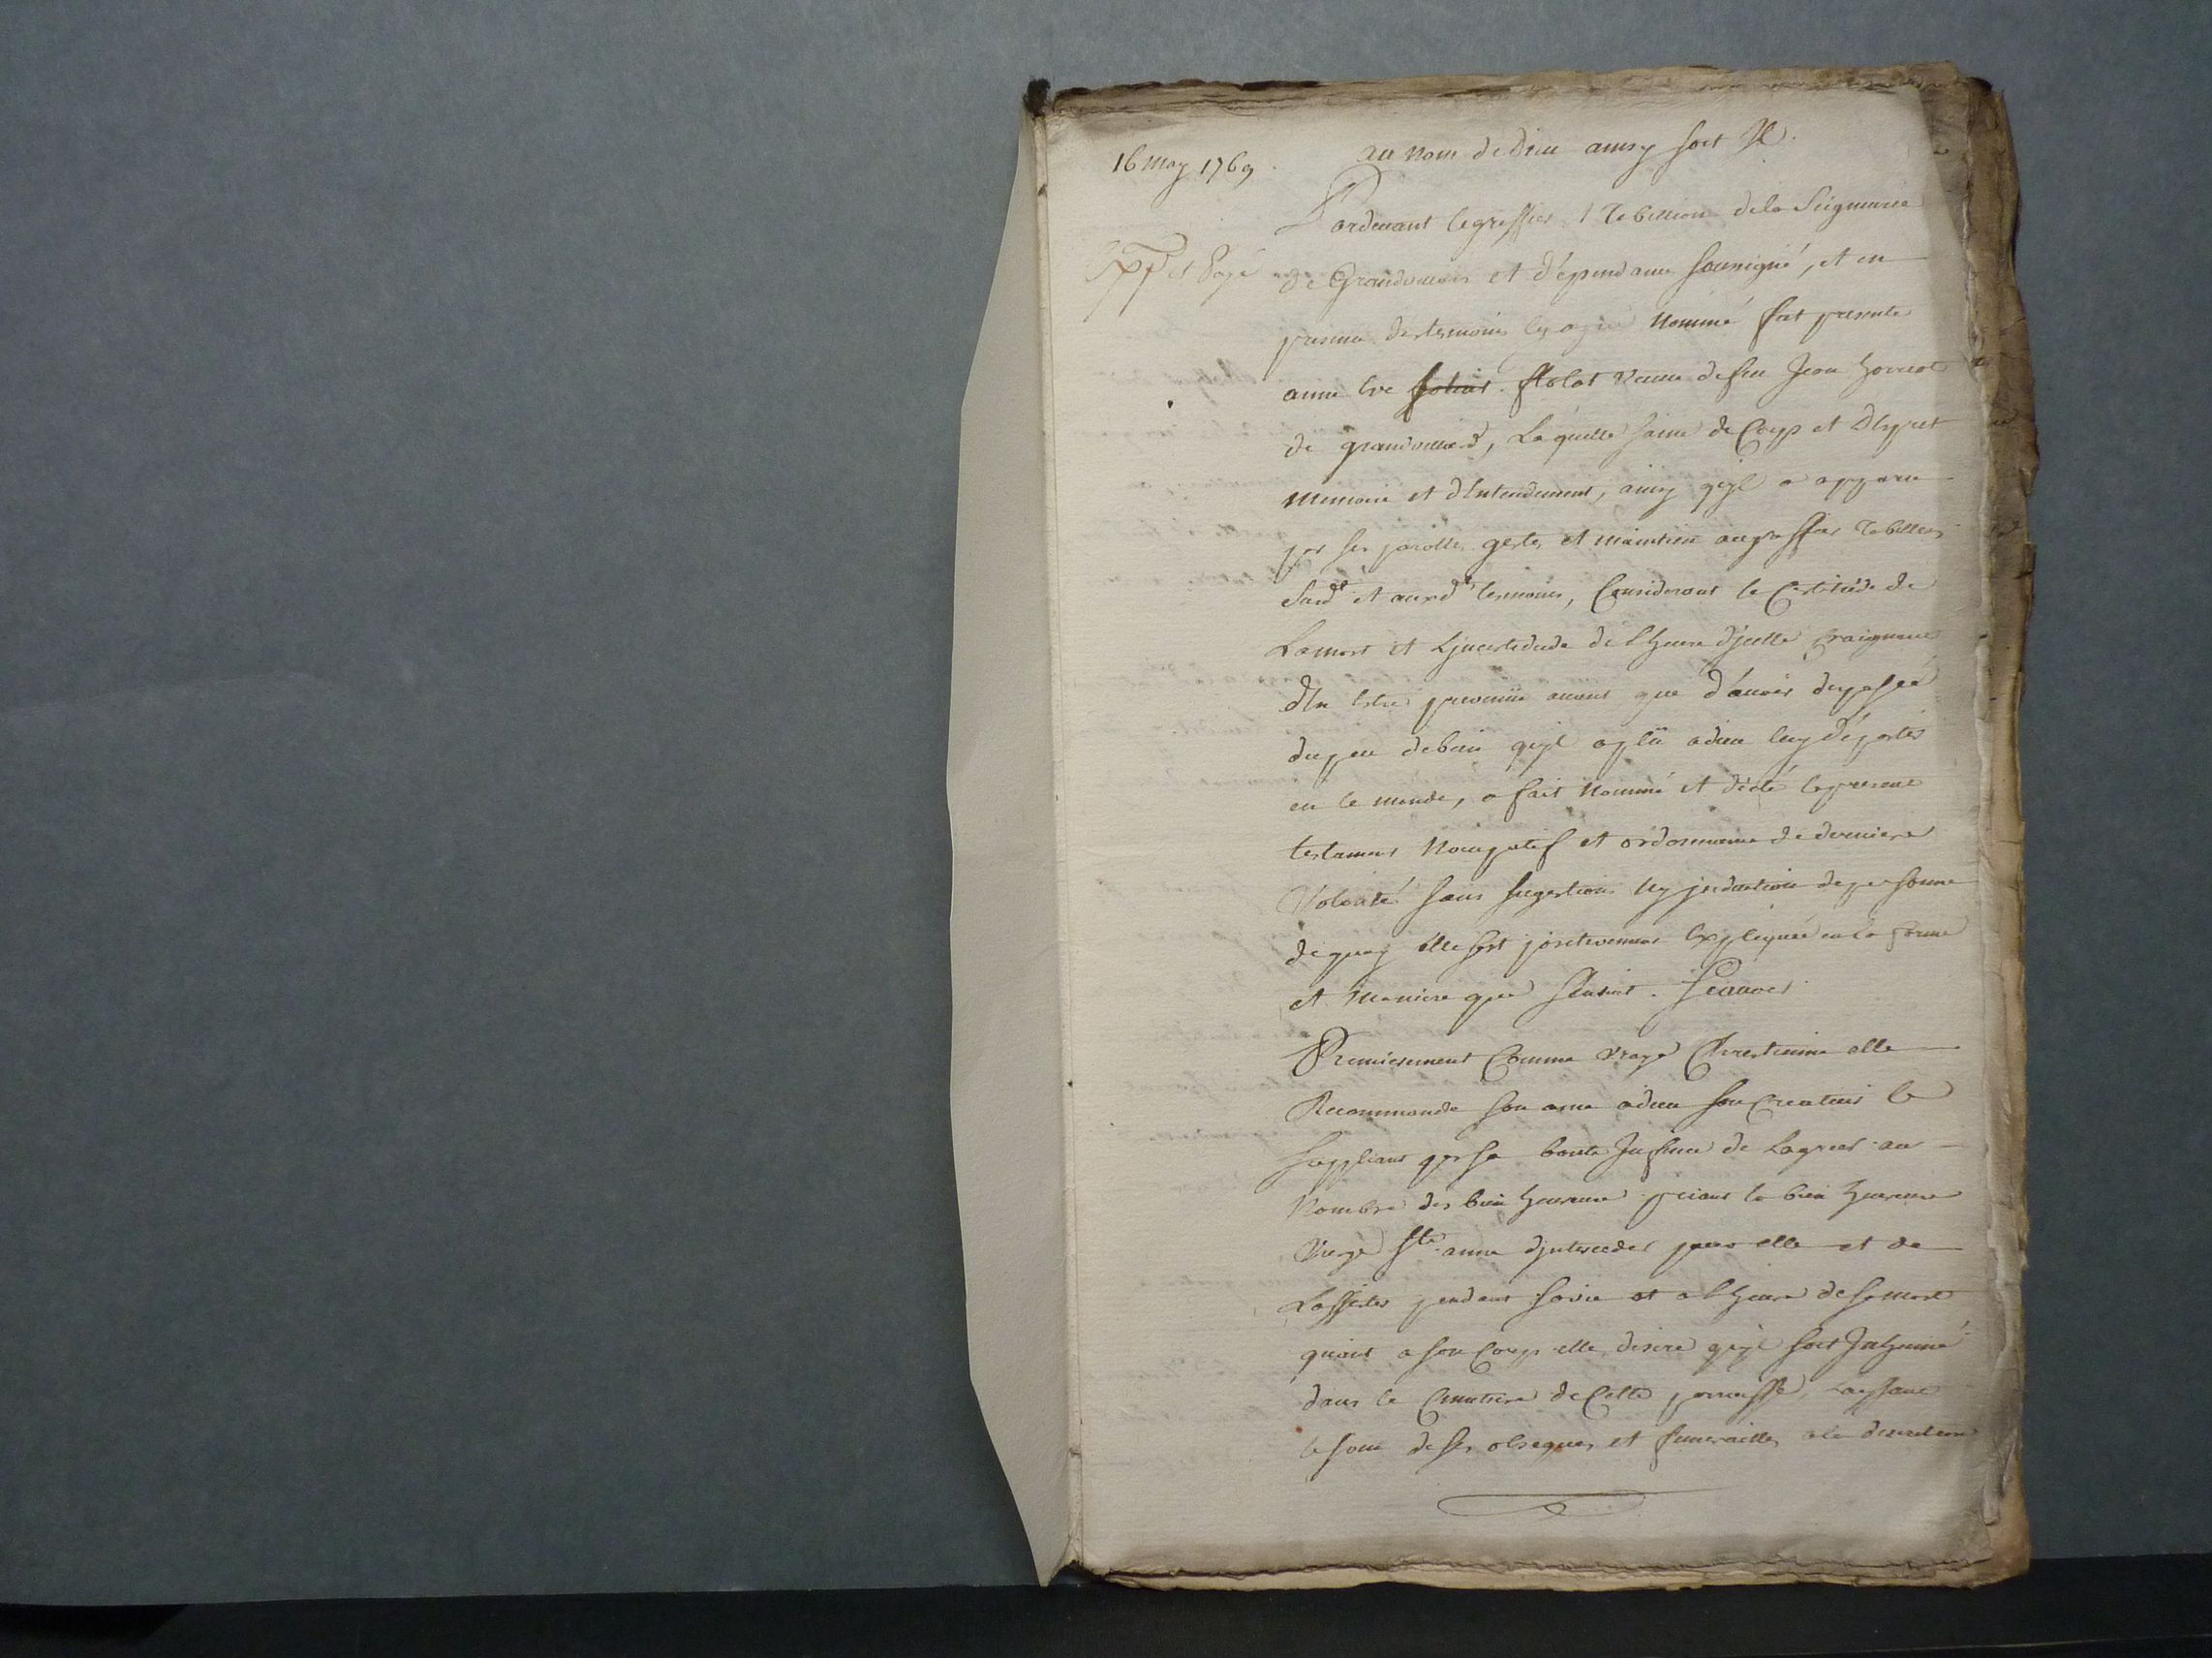 16 may 1769
au nom de dieu ainsy soit Il.
Pardevant le greffier Tabellion de la Seigneurie
Expé et Payé
de Grandvillars et dépendance soussigné, et en
presence des temoins cy aprés nommé fut presente
anne Eve Flotat Veuve de feu Jean
de grandvillard, Laquelle saine de Corps et d'Esprit
memoire et d'Entendement, ainsy qu'jl a apparu
par ses parolles gestes et maintien au greffier Tabellion
susdt et auxdt temoins, Considerant la Certitude de
La mort et L'jncertidude de l'heure d'jcelle Craignant
d'En Estre prevenüe avant que d'avoir disposée
du peu de bien qu'jl a plü a dieu luy départir
en ce monde, a fait nommé et dicté le present
testament Noncupatif et ordonnance de derniere
Volonté sans sugestion ny jnduction de personne
de quoy elle s'est positivement Expliquée en la forme
et maniere que s'ensuit. Scavoir
Premierement Comme vraye Chrestienne elle
Recommande son ame a dieu son Createur le
suppliant par sa bonté Infinie de L'agreer au
Nombre des bien heureux priant la bien heureuse
Vierge Ste anne d'jnterceder pour elle et de
L'assister pendant sa vie et a l'heure de sa mort
quant a son Corps elle desire qu'jl soit Inhumé
dans le Cimetiere de Cette paroisse, Laissant
le soin de ses obseques et funerailles a la discretion